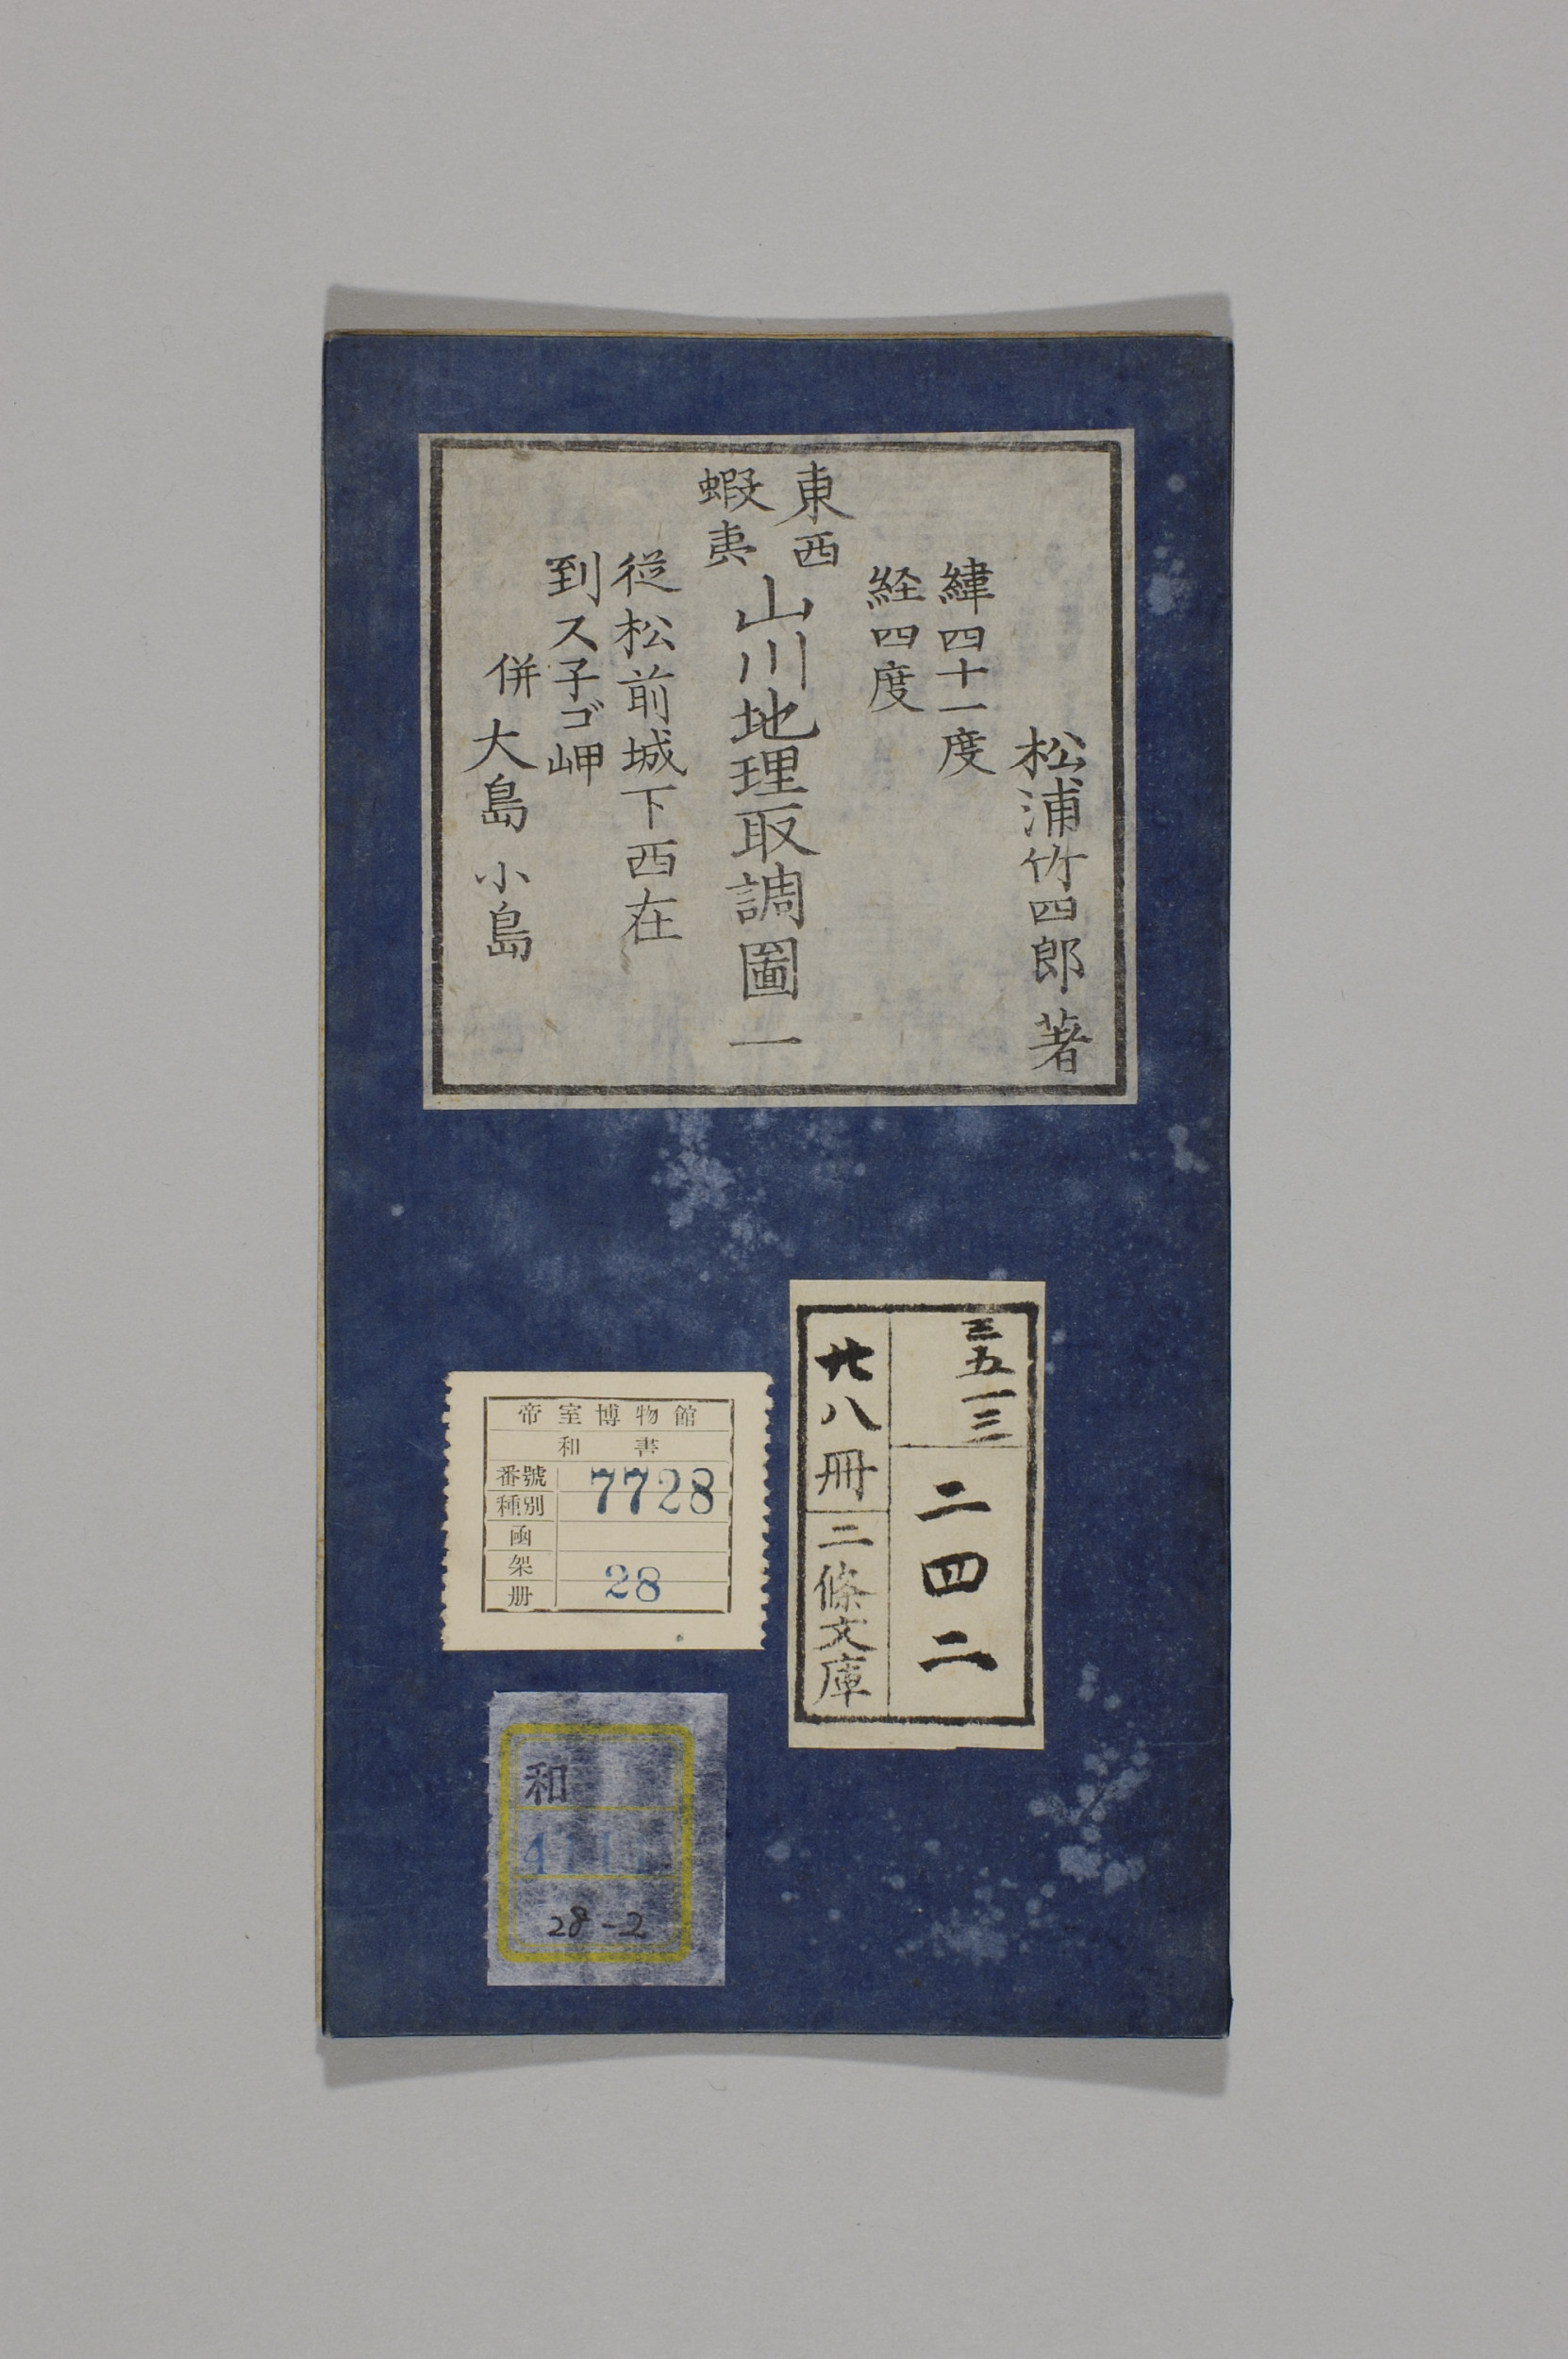 松浦竹四郎著
緯四十一度
経四度
東西
蝦夷
山川地理取調圖 一
従松前城下西在
到ス子ゴ岬
併 大島 小島
三五一三
二四二
廿八冊
二條文庫
帝室博物館
和書
番號 7728
種別
函
架 28
册
和
28-2